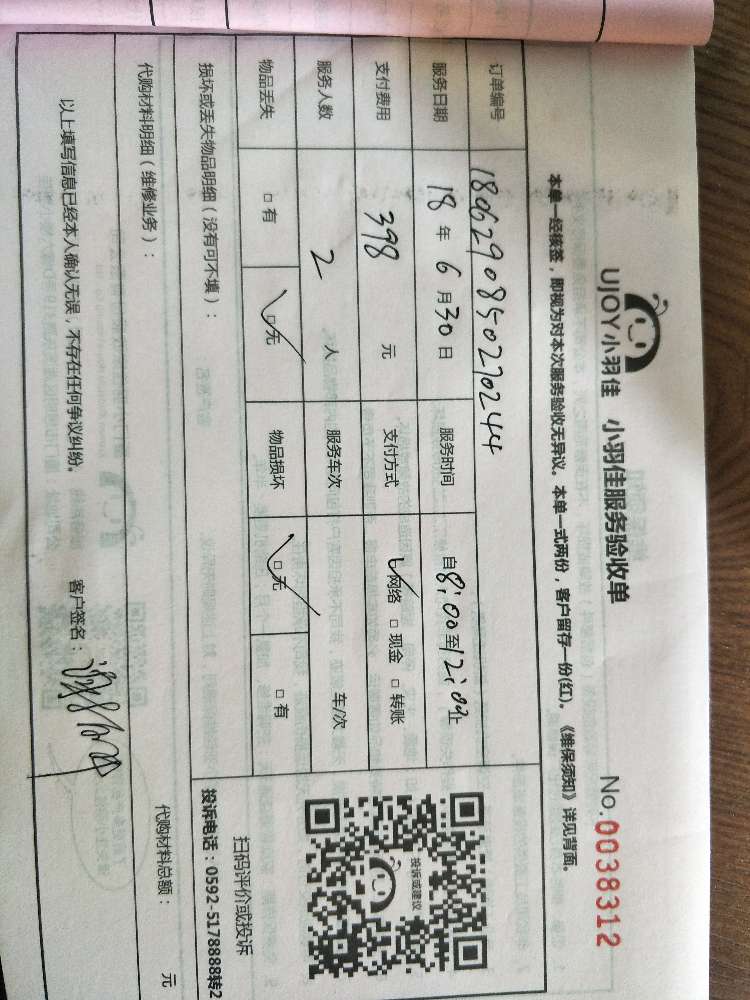 UJOY小羽佳 小羽佳服务验收单
No.0038312
本单一经核签，即视为对本次服务验收无异议。本单一式两份，客户留存一份(红)。《维保须知》详见背面。
订单编号 1806290850270244
服务日期 18 年 6 月 30 日 服务时间 自 8:00 至 12:00 止
支付费用 398 元 支付方式 ☑网络 □现金 □转账
服务人数 2 人 服务车次 车/次
物品丢失 □有 ☑无 物品损坏 ☑无 □有
投诉或建议
扫码评价或投诉
投诉电话：0592-5178888转2
损坏或丢失物品明细（没有可不填）：
代购材料明细（维修业务）：
代购材料总额： 元
以上填写信息已经本人确认无误，不存在任何争议纠纷。 客户签名：